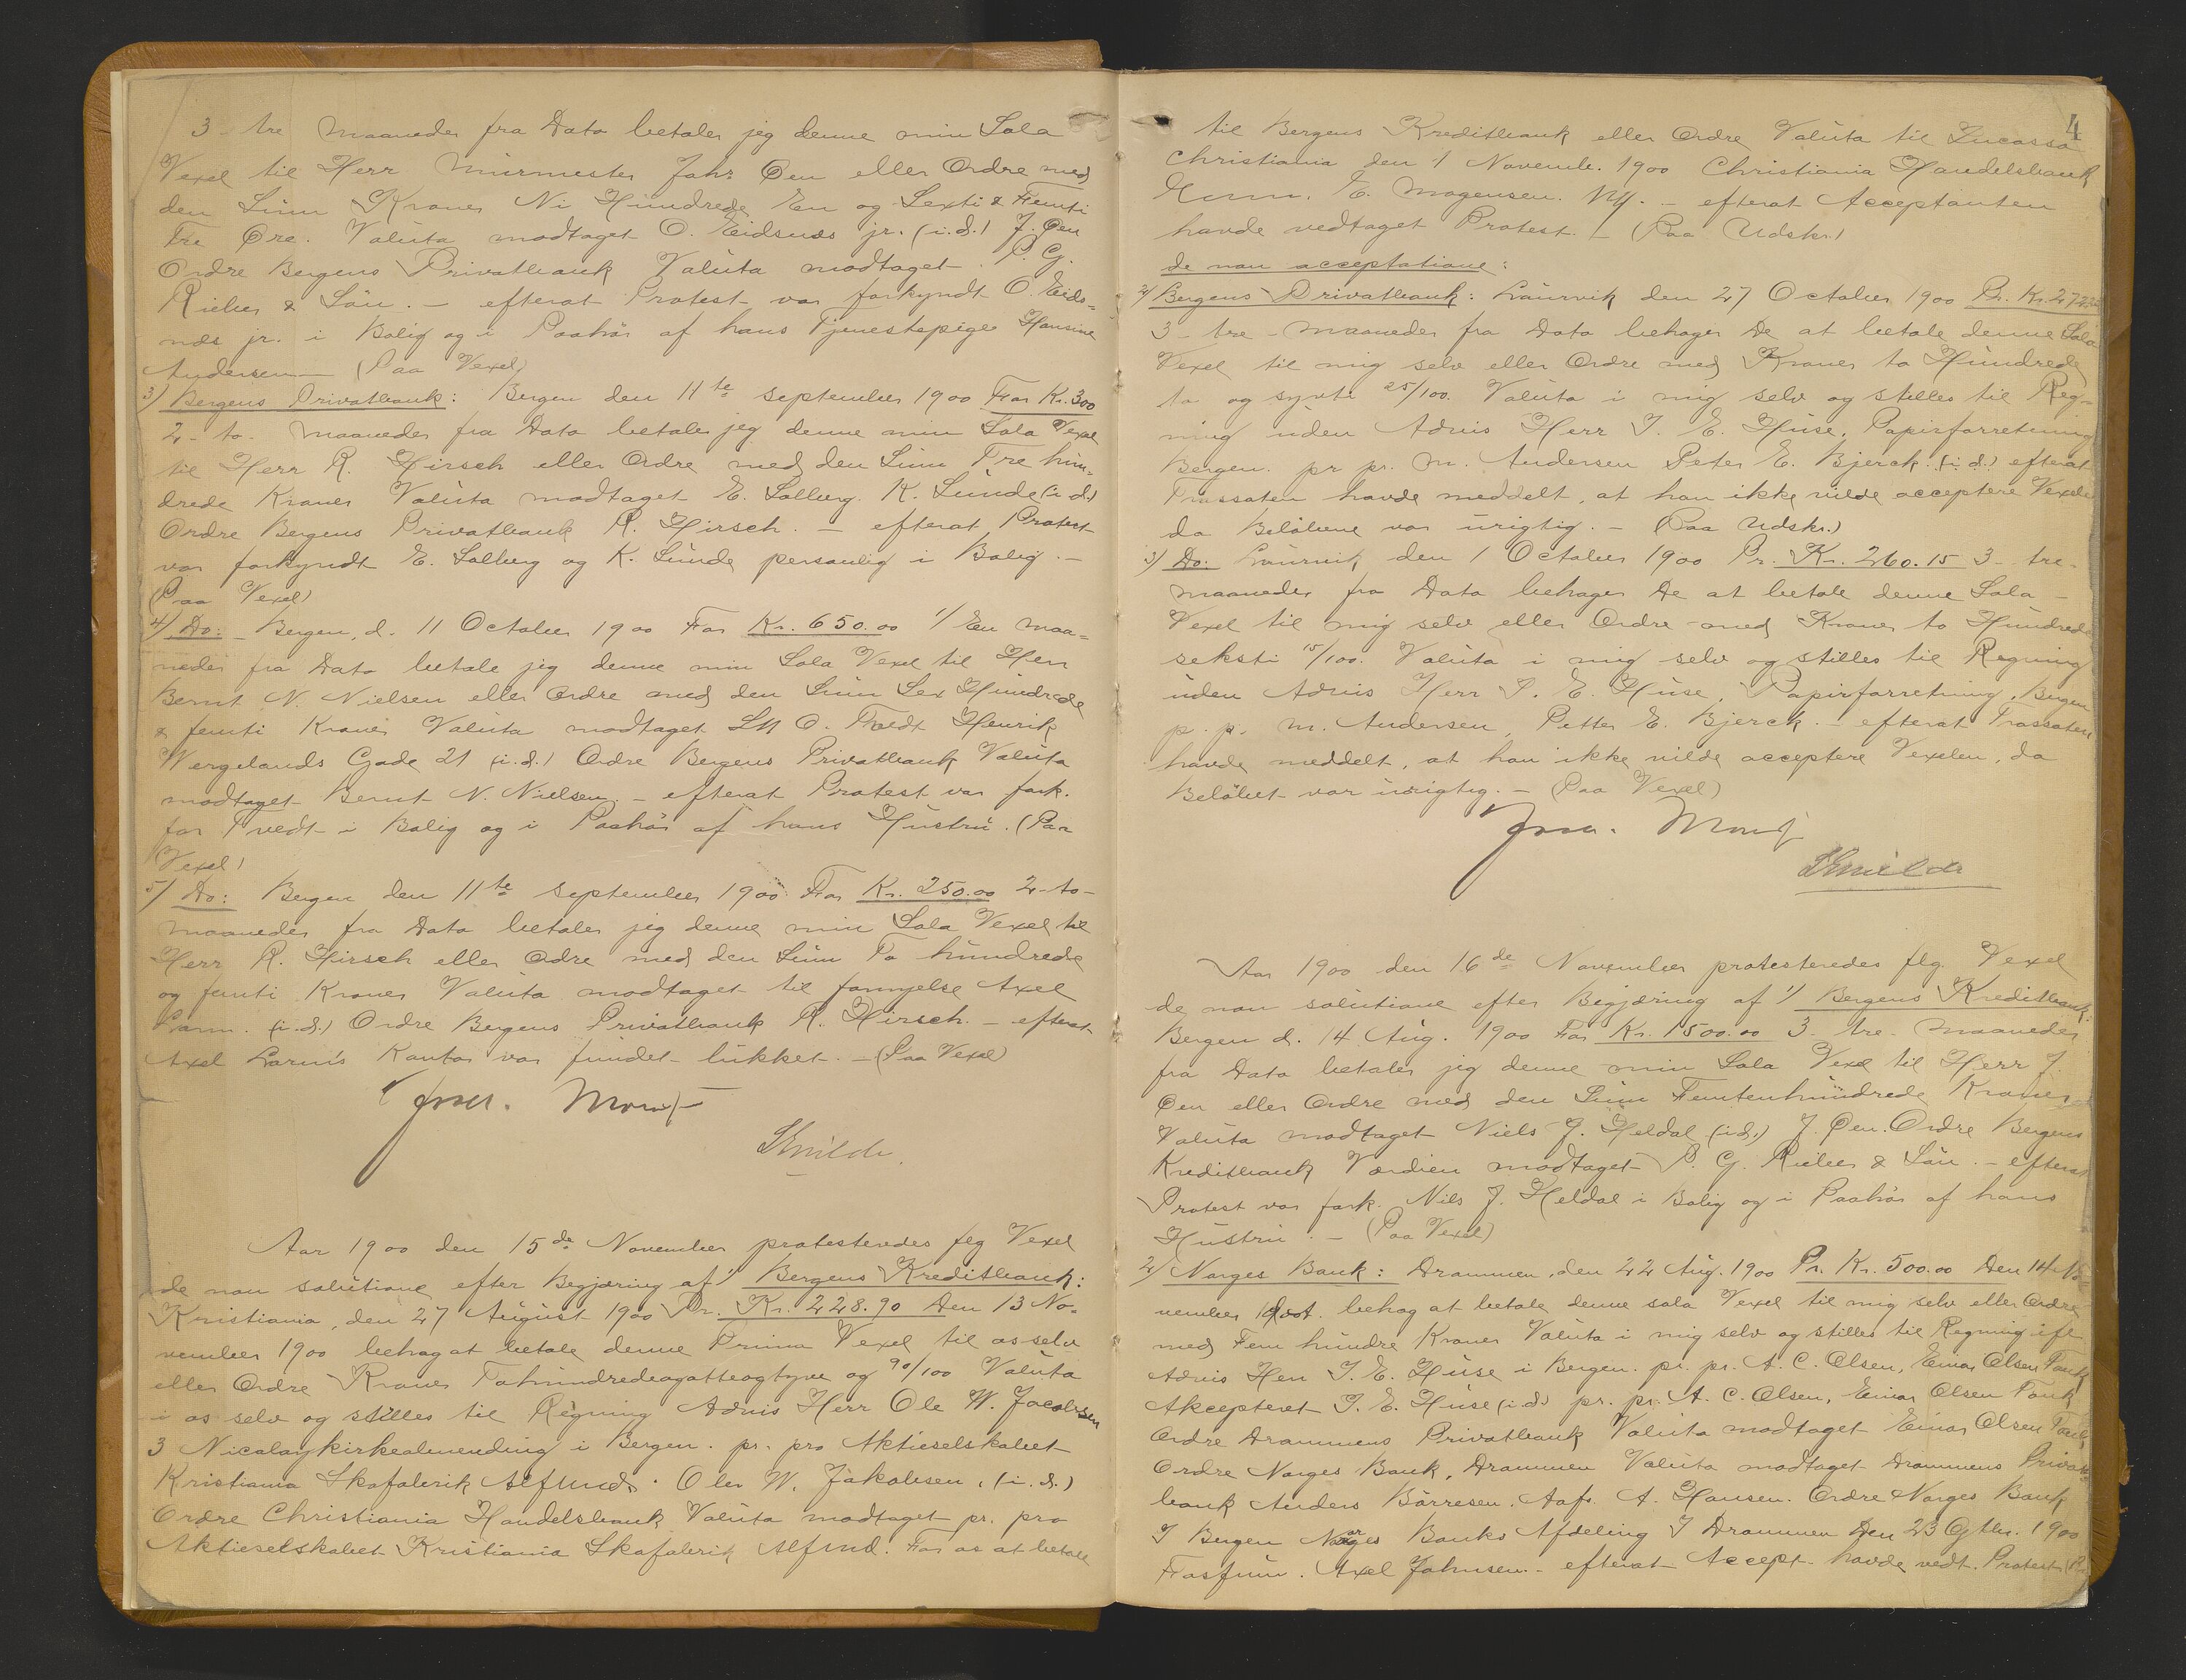 3 - tre Maaneder fra Dato betaler jeg denne min Sola
Vexel til Herr Murmester Johs Øen eller Ordre med
den Sum Kroner Ni Hundrede En og Sexti & Femti
Tre Øre. Valuta modtaget O. Eidsnæs jr. (i.d.) J. Øen
Ordre Bergens Privatbank Valuta modtaget. P. G.
Rieber & Søn. - efterat Protest var forkyndt O. Eids=
næs jr. i Bolig og i Paahør af hans Tjenestepige Hansine
Andersen - (Paa Vexel)
3) Bergens Privatbank: Bergen den 11te September 1900 For Kr. 300
2 - to - Maaneder fra Dato betaler jeg denne min Sola Vexel
til Herr R. Hirsch eller Ordre med den Sum Tre hun-
drede Kroner Valuta modtaget E. Solberg. K. Lunde (i.d.)
Ordre Bergens Privatbank R. Hirsch. - efterat Protest
var forkyndt E. Solberg og K. Lunde personlig i Bolig. -
(Paa Vexel)
4) Do: - Bergen, d. 11 October 1900 For Kr. 650.00 1/ En Maa=
neder fra Dato betale jeg denne min Sola Vexel til Herr
Bernt N. Nielsen eller Ordre med den Sum Sex Hundrede
& femti Kroner Valuta modtaget O. Tvedt Henrik
Wergelands Gade 21 (i.d.) Ordre Bergens Privatbank Valuta
modtaget Bernt N. Nielsen. - efterat Protest var fork.
for Tvedt i Bolig og i Paahør af hans Hustru. (Paa
Vexel)
5) Do: Bergen den 11te September 1900 For Kr. 250.00 2 - to -
Maaneder fra Dato betaler jeg denne min Sola Vexel til
Herr R. Hirsch eller Ordre med den Sum To hundrede
og femti Kroner Valuta modtaget til fornyelse Axel
Larm. (i.d.) Ordre Bergens Privatbank R. Hirsch. - efterat
Axel Larm's Kontor var fundet lukket. - (Paa Vexel)
Aar 1900 den 15de November protesteredes flg Vexel
de non solutione efter Begjæring af 1) Bergens Kreditbank:
Kristiania, den 27 August 1900 Pr. Kr. 228.90 Den 13 No=
vember 1900 behag at betale denne Prima Vexel til os selv
eller Ordre Kroner Tohundredeogotteogtyve og 90/100 Valuta
i os selv og stilles til Regning Advis Herr Ole W. Jacobsen
3 Nicolaykirkealmending i Bergen. pr. pro Aktieselskabet
Kristiania Skofabrik Alfund. Ole W. Jakobsen. (i.d.)
Ordre Christiania Handelsbank Valuta modtaget pr. pro
Aktieselskabet Kristiania Skofabrik Alfund. For os at betale
4
til Bergens Kreditbank eller Ordre Valuta til Incasso
Christiania den 1 Novemb. 1900 Christiania Handelsbank
E. Mogensen. - efterat Acceptanten
havde vedtaget Protest. - (Paa Udskr.)
de non acceptatione:
2) Bergens Privatbank: Laurvik den 27 October 1900 Pr. Kr. 272.25
3 - tre - Maaneder fra Dato behager De at betale denne Sola
Vexel til mig selv eller Ordre med Kroner to Hundrede
to og sytti 25/100. Valuta i mig selv og stilles til Reg=
ning uden Advis Herr J. E. Huse, Papirforretning
Bergen. pr pr. M. Andersen Peter E. Bjerck. (i.d.) efterat
Trassaten havde meddelt, at han ikke vilde acceptere Vexelen
da Beløbene var urigtig. - (Paa Udskr.)
3) Do: Laurvik den 1 October 1900 Pr. Kr. 260.15 3 - tre -
Maaneder fra Dato behager De at betale denne Sola -
Vexel til mig selv eller Ordre med Kroner to Hundrede
seksti 15/100. Valuta i mig selv og stilles til Regning
uden Advis Herr J. E. Huse, Papirforretning, Bergen
p. p. M. Andersen, Petter E. Bjerck. - efterat Trassaten
havde meddelt, at han ikke vilde acceptere Vexelen, da
Beløbet var urigtig. - (Paa Vexel)
Aar 1900 den 16de November protesteredes flg. Vexel
de non solutione efter Begjæring af 1) Bergens Kreditbank:
Bergen d. 14 Aug. 1900 For Kr. 1500.00 3 - tre - Maaneder
fra Dato betaler jeg denne min Sola Vexel til Herr J.
Øen eller Ordre med den Sum Femtenhundrede Kroner
Valuta modtaget Niels J. Heldal (i.d.) J. Øen. Ordre Bergens
Kreditbank Værdien modtaget P. G. Rieber & Søn. - efterat
Protest var fork. Nils J. Heldal i Bolig og i Paahør af hans
Hustru. - (Paa Vexel)
2) Norges Bank: Drammen, den 22 Aug. 1900 Pr. Kr. 500.00 Den 14 No=
vember behag at betale denne sola Vexel til mig selv eller Ordre
med Fem hundre Kroner Valuta i mig selv og stilles til Regning ifl
Advis Herr J. E. Huse i Bergen. pr. pr. A. C. Olsen, Einar Olsen Fauk
Akcepteret J. E. Huse (i.d.) pr. pr. A. C. Olsen, Einar Olsen Fauk
Ordre Drammens Privatbank Valuta modtaget Einar Olsen Fauk
Ordre Norges Bank, Drammen Valuta modtaget Drammens Privat=
bank Anders Børresen. A. Hansen. Ordre Norges Bank
I Bergen Norges Banks Afdeling I Drammen Den 23 Otbr. 1900
Axel Johnsen - efterat Accept. havde vedt. Protest